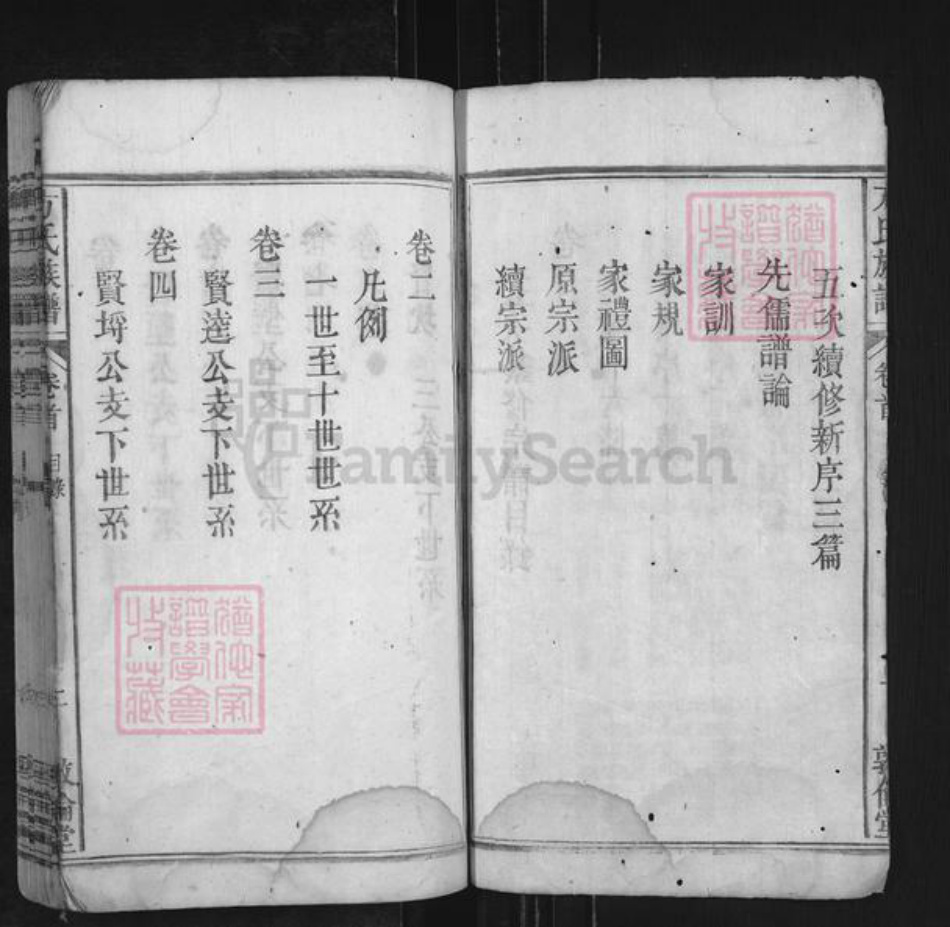 方氏族譜
卷首
敦倫堂
五次續修新序三篇
先儒譜論
家訓
家規
家禮圖
原宗派
續宗派
卷二
凡例
一世至十世世系
卷三
賢逵公支下世系
卷四
賢埓公支下世系
方氏族譜
卷首
目錄
二
敦倫堂
家
譜學會
收藏
FamilySearch